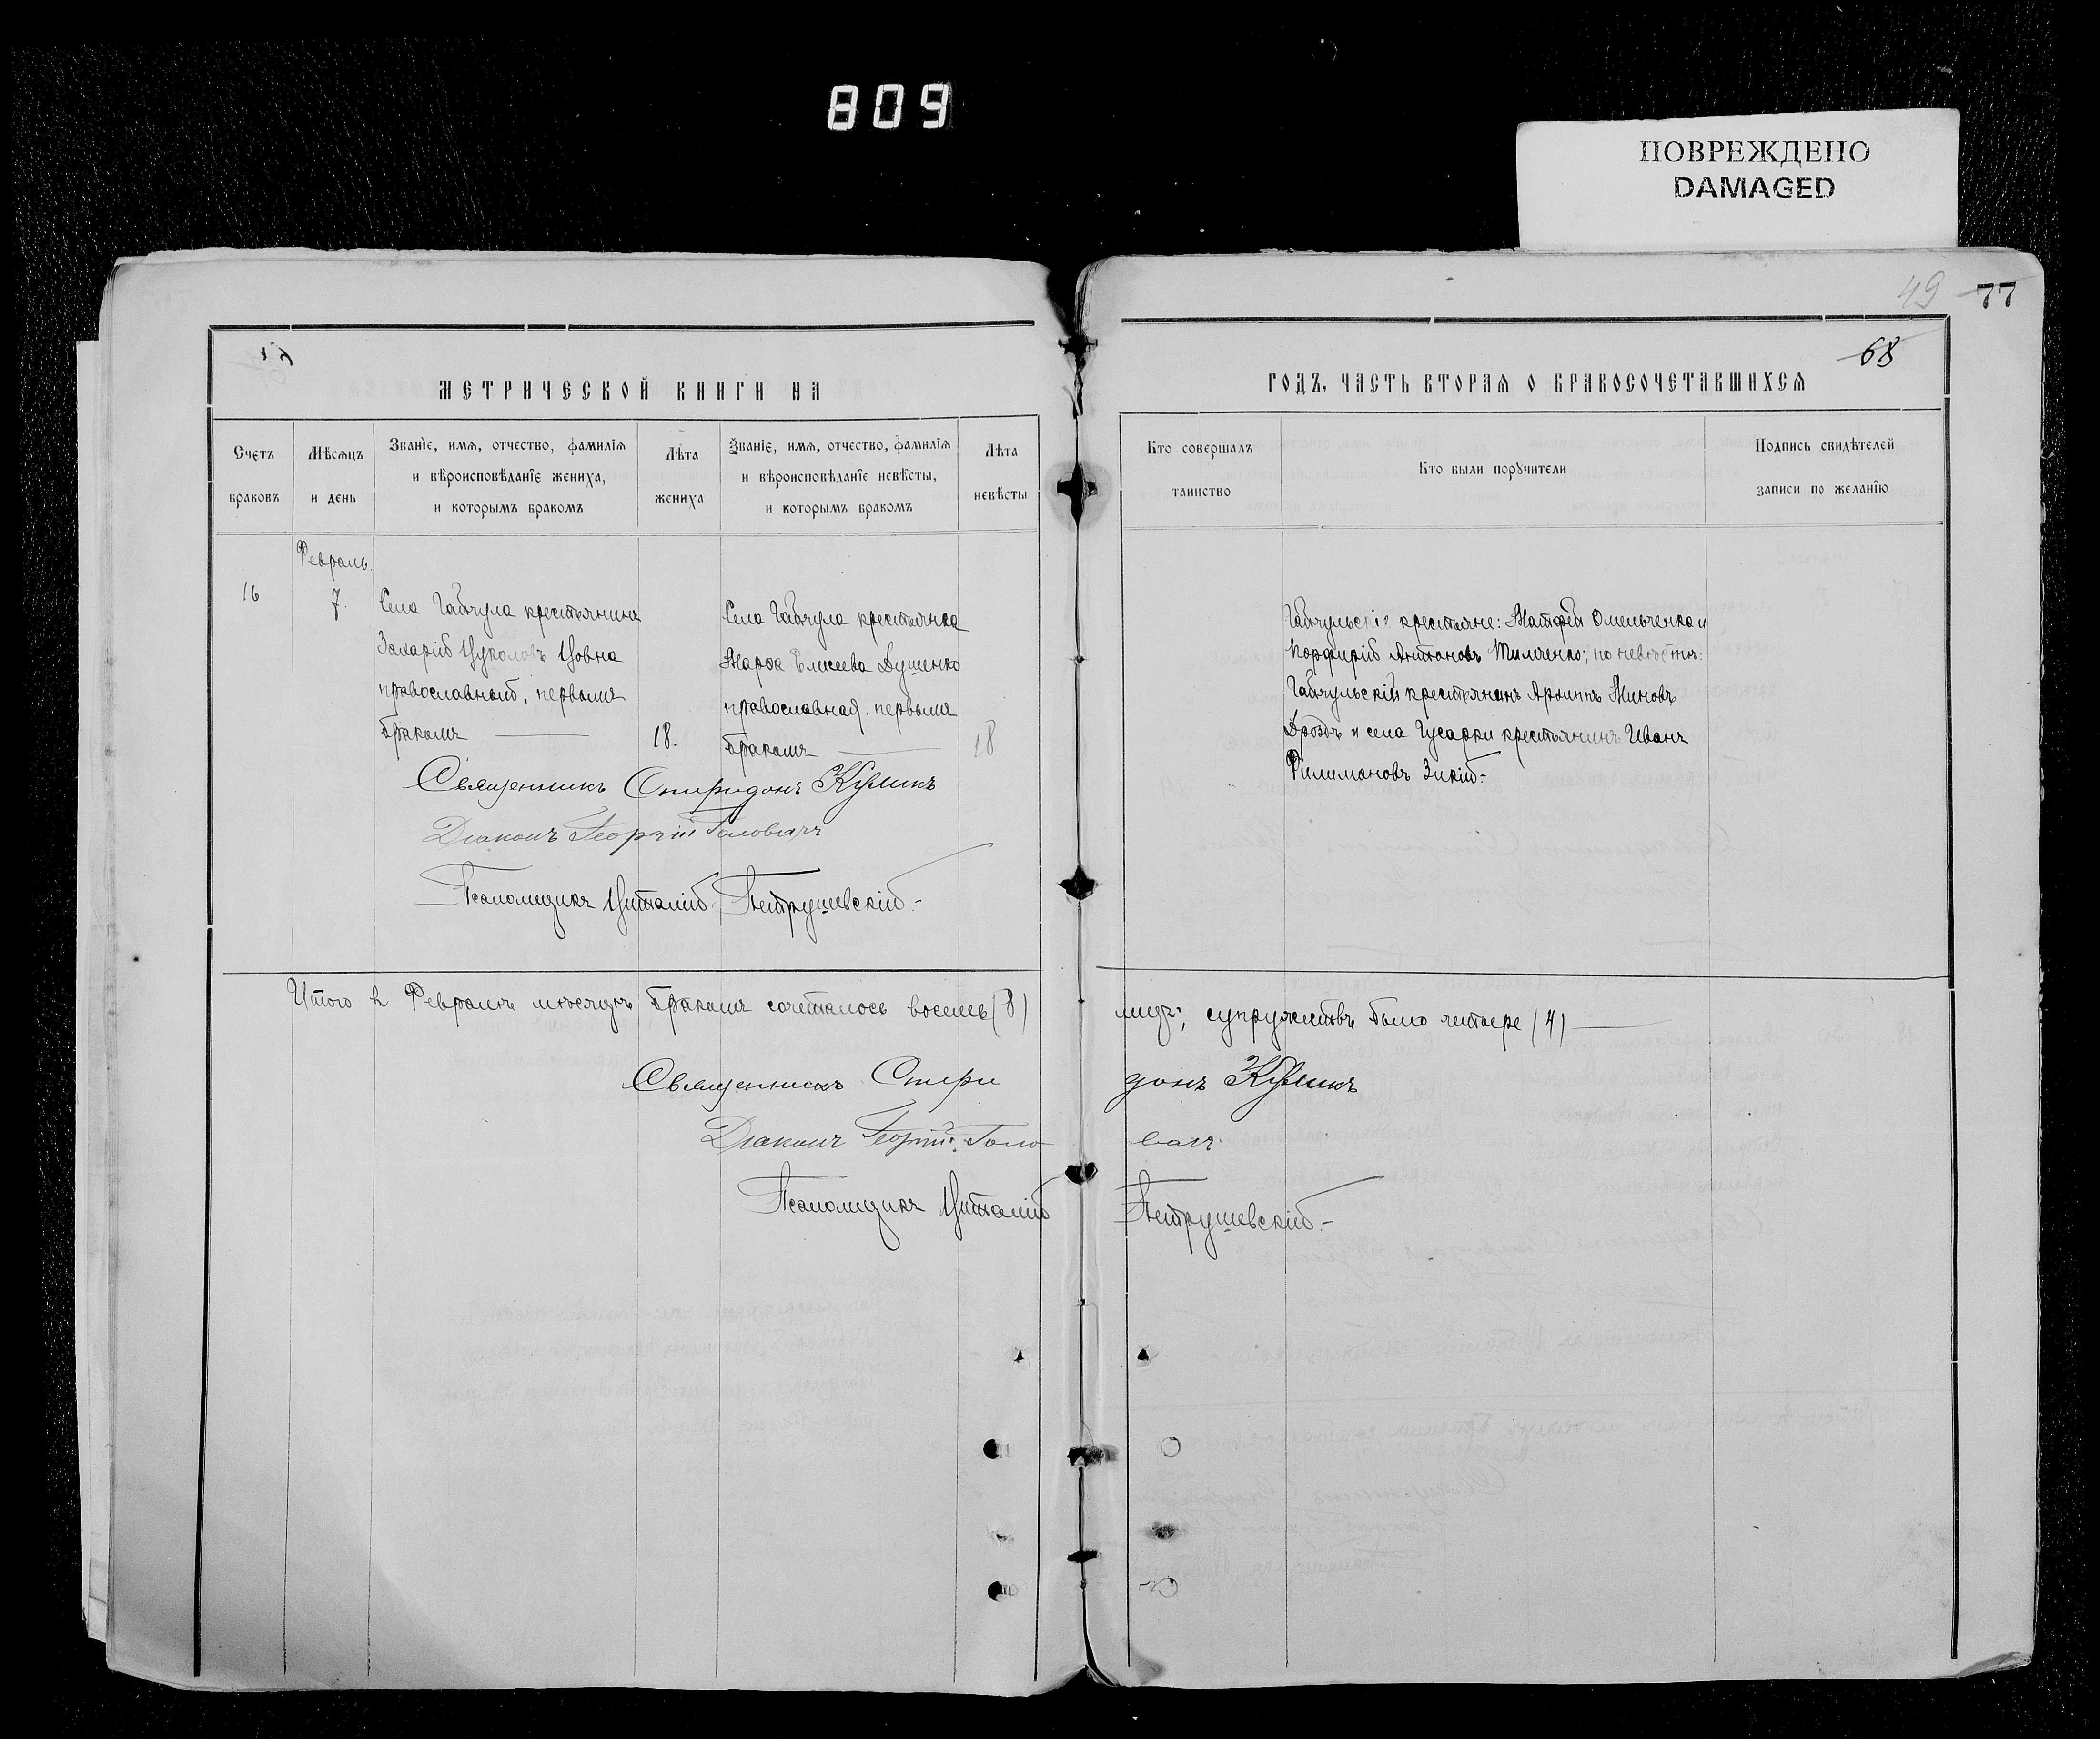 809
ПОВРЕЖДЕНО
DAMAGED
49 77
68
МЕТРИЧЕСКОЙ КНИГИ НА
ГОДЪ, ЧАСТЬ ВТОРАЯ О БРАКОСОЧЕТАВШИХСЯ
Счетъ браковъ
Мѣсяцъ и день
Званіе, имя, отчество, фамилія
и вѣроисповѣданіе жениха,
и которымъ бракомъ
Лѣта жениха
Званіе, имя, отчество, фамилія
и вѣроисповѣданіе невѣсты,
и которымъ бракомъ
Лѣта невѣсты
Кто совершалъ
таинство
Кто были поручители
Подпись свидѣтелей
записи по желанію
Февраль.
16
7.
Села Гайчула крестьянинъ
Захарій
православный, первымъ
бракомъ
18.
Села Гайчула крестьянка
Елисеева Душенко
православная, первымъ
бракомъ
18
Гайчульскіе крестьяне: Матфей Омельченко и
Порфирій Антоновъ Тимченко; по невѣстѣ:
Гайчульскій крестьянинъ Архиппъ Миновъ
Дроздъ и села Гусарки крестьянинъ Иванъ
Филимоновъ Зикій.-
Священникъ Спиридонъ Куликъ
Діаконъ Георгій Головачъ
Псаломщикъ Виталій Петрушевскій.-
Итого въ Февралѣ мѣсяцѣ бракомъ сочеталось восемь (8) лицъ; супружествъ было четыре (4)
Священникъ Спиридонъ Куликъ
Діаконъ Георгій Головачъ
Псаломщикъ Виталій Петрушевскій.-